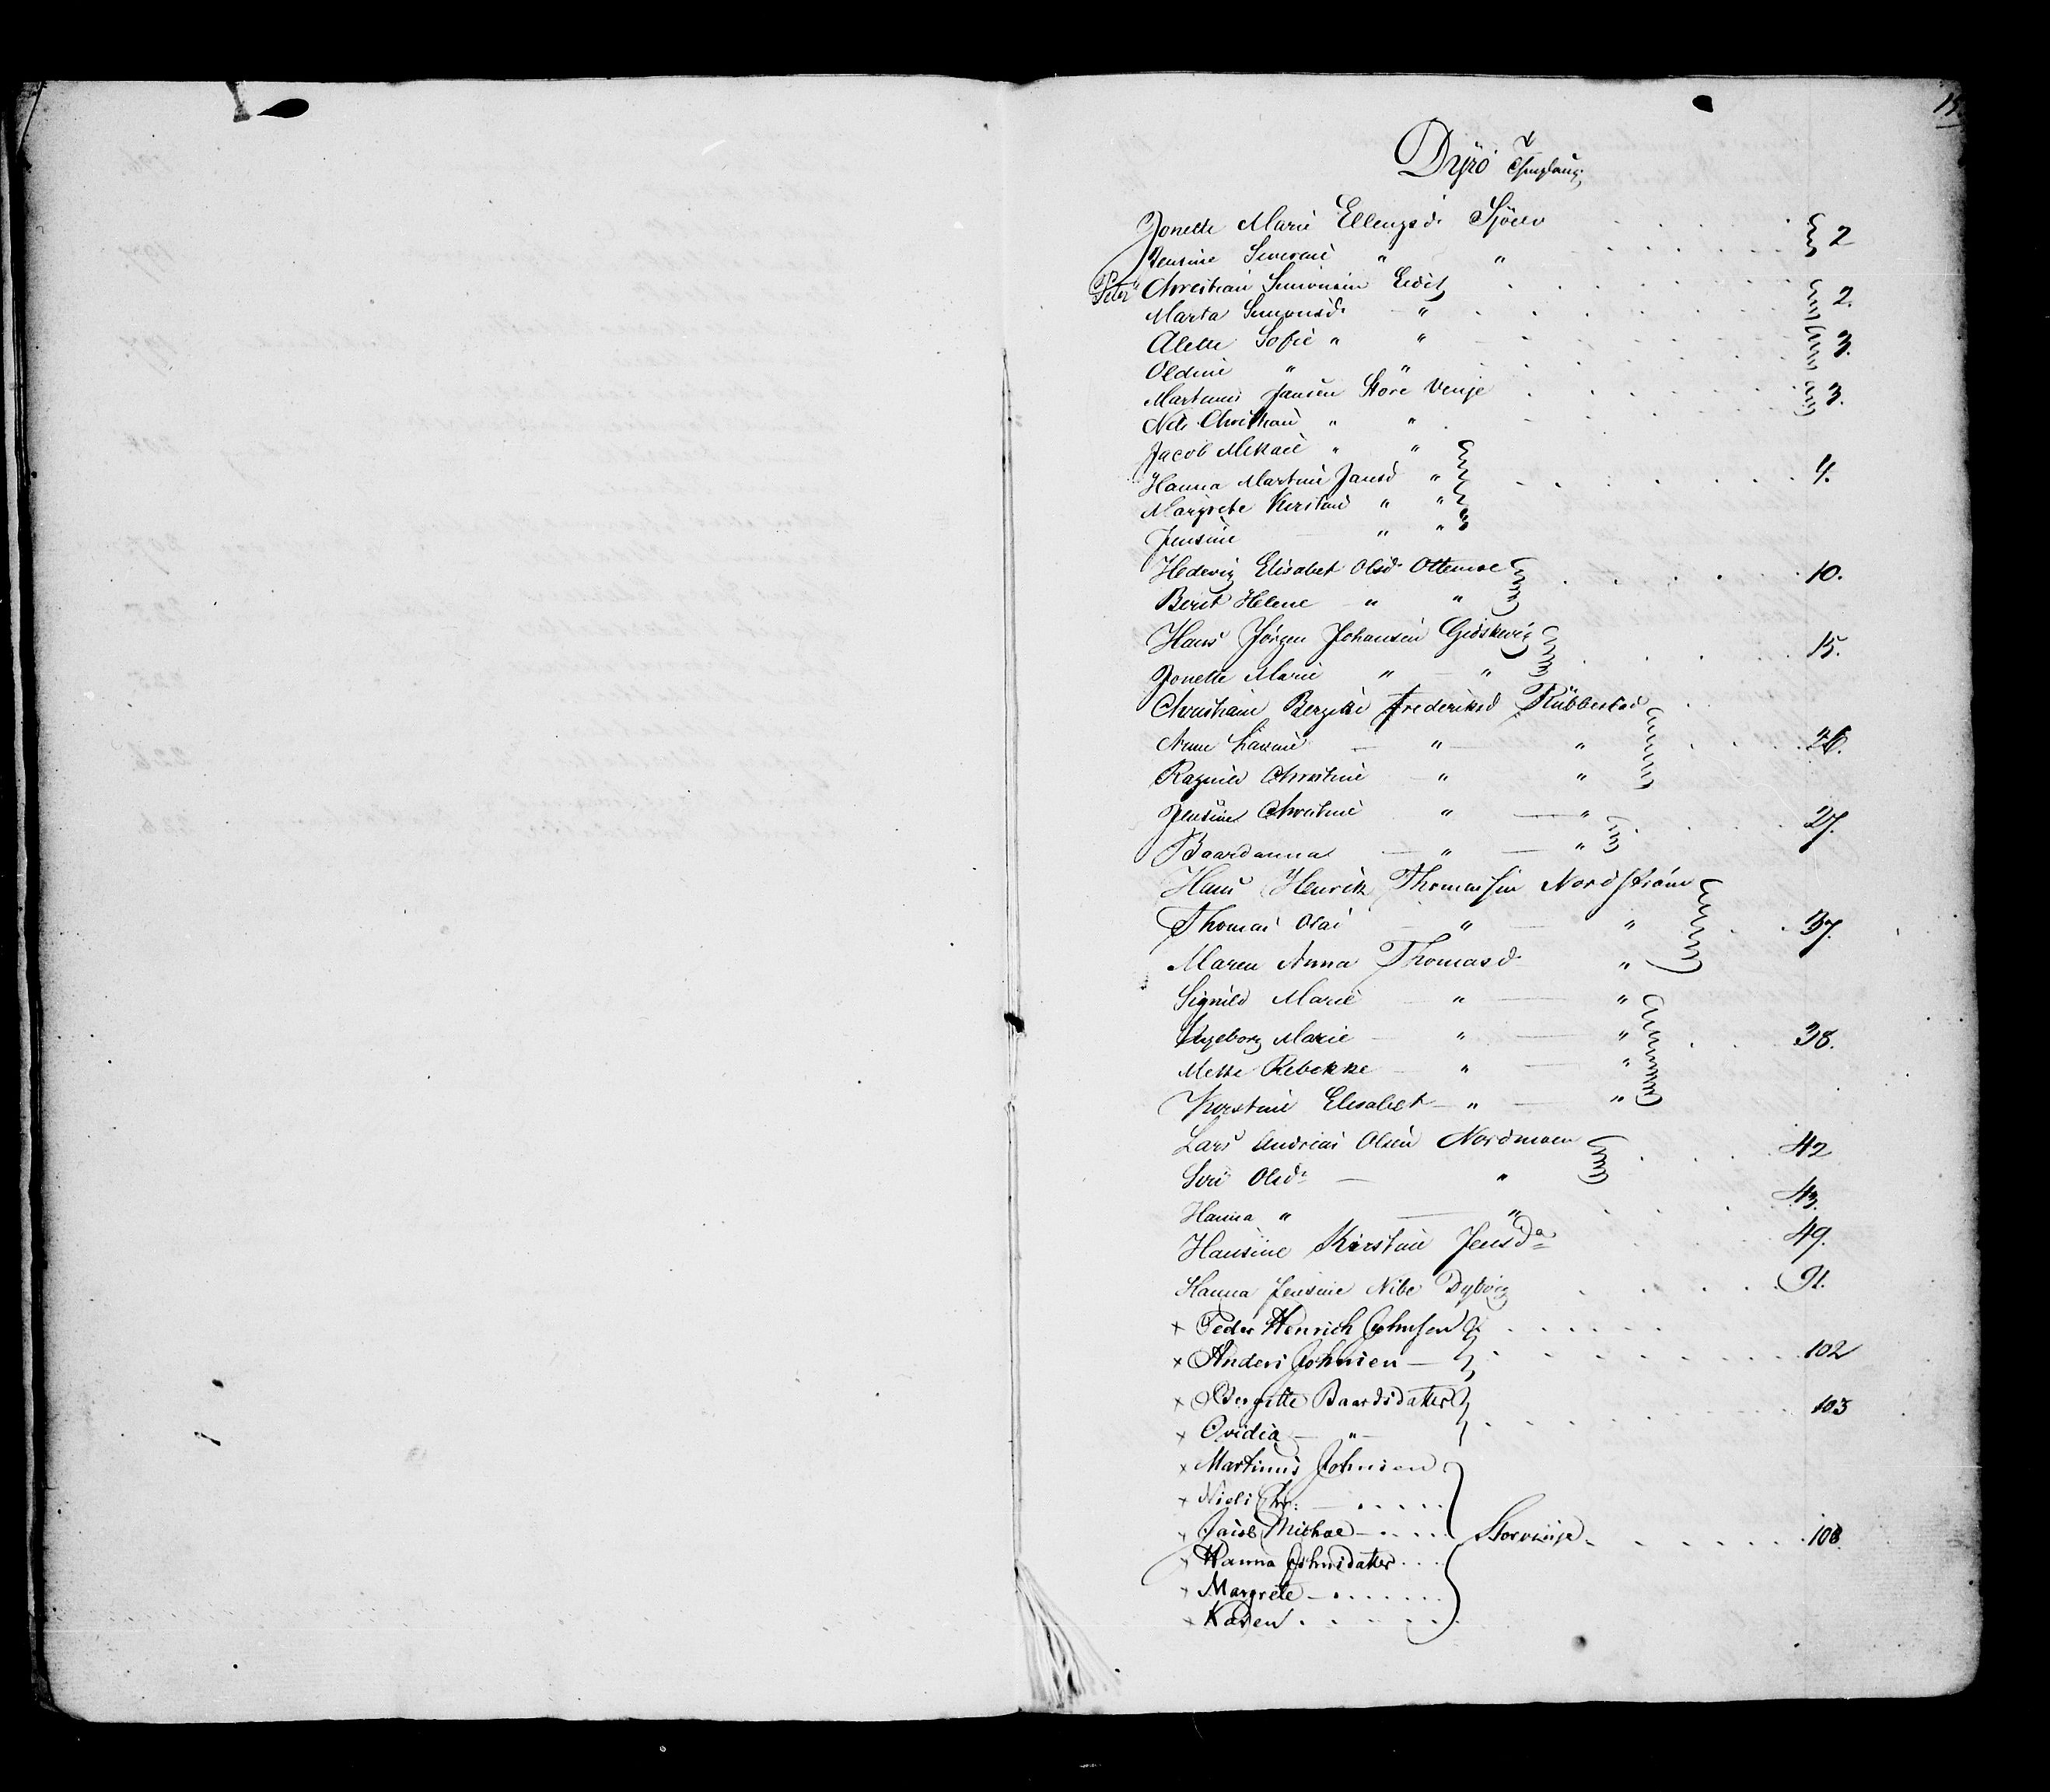 Dyrö
Jonette Marie Ellengsd. Sjöen 2
Jensine Severine " "
Peter Christian Simonsen Eidet 2.
Marta Simonsd. "
Alette Sofie " " 3.
Oldine " "
Martinus Jansen Store Vinje 3.
Nils Christian " "
Jacob Mikael " "
Hanna Martine Jansd " 4.
Margrete Kirstine " "
Jensine " "
Hedevig Elisabet Olsd. Ottemoe 10.
Berit Helene " "
Hans Jørgen Johansen Gidskevig 15.
Jonette Marie " "
Christiane Bergitte Frederiksd Rübbestad
Anne Lavine " " 26.
Ragnild Christine " "
Jensine Christine " " 27.
Baardanna " "
Hans Henrik Thomassen Nordström
Thomas Olai " " 37.
Maren Anna Thomasd "
Signild Marie " "
Ingeborg Marie " " 38.
Mette Rebekke " "
Kirstine Elisabet " "
Lars Andreas Olsen Nordmoen 42
Siri Olsd. "
Hanna " " 43.
Hansine Kirstine Jensda 49.
Hanna Jensine Nibe Dybvig 91.
x Peder Henrich Johnsen
x Anders Johnsen 102
x Bergitte Baardsdatter 103
x Ovidia "
x Martinus Johnsen
x Niels Chr:
x Jacob Michae Storvinje 108
x Hanna Johnsdatter
x Margrete
x Karen